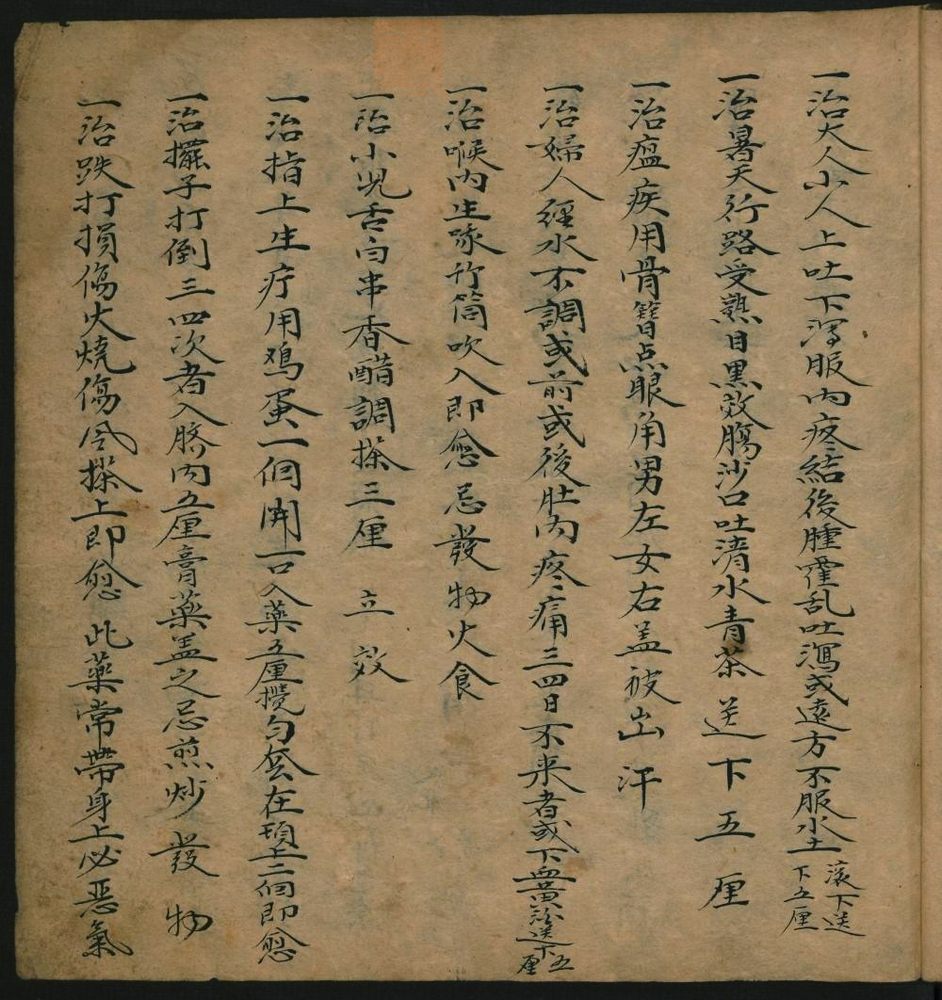 一治大人小人上吐下瀉服内疼結後腫霍乱吐瀉或遠方不服水土滚下送下五厘
一治暑天行路受熟目黒效腸沙口吐清水青茶送下五厘
一治瘟疾用骨簪点眼角男左女右盖被出汗
一治婦人經水不調或前或後肚内疼痛三四日不来者或下血黄湯送下五厘
一治喉内生啄竹筒吹入即愈忌發物火食
一治小児舌白串香醋調搽三厘立效
一治指上生疔用鸡蛋一個開一口入藥五厘攪匀套在項上二個即愈
一治擺子打倒三四次者入臍内五厘膏藥盖之忌煎炒發物
一治跌打損傷火烧傷風搽上即愈此藥常帶身上必惡氣